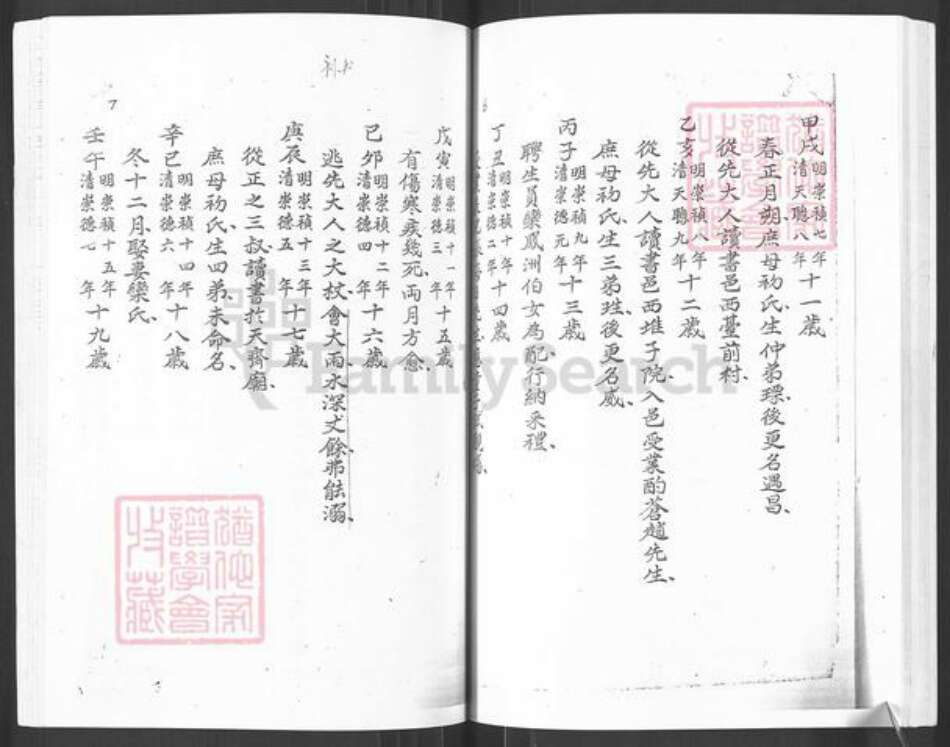 甲戌明崇禎七年清天聰八年十一歲
春正月朔庶母初氏生仲弟瑮後更名遇昌、
從先大人讀書邑西臺前村、
乙亥明崇禎八年清天聰九年十二歲
從先大人讀書邑西堆子院入邑受業酌蒼趙先生、
庶母初氏生三弟珄、後更名威、
丙子明崇禎九年清崇德元年十三歲
聘生員欒鳳洲伯女為配行納采禮、
丁丑明崇禎十年清崇德二年十四歲
戊寅明崇禎十一年清崇德三年十五歲
有傷寒疾幾死、兩月方愈、
己卯明崇禎十二年清崇德四年十六歲
逃先大人之大杖、會大雨水深丈餘弗能溺、
庚辰明崇禎十三年清崇德五年十七歲
從正之三叔讀書於天齊廟、
庶母初氏生四弟未命名、
辛巳明崇禎十四年清崇德六年十八歲
冬十二月娶妻欒氏、
壬午明崇禎十五年清崇德七年十九歲
7
猶他家譜學會收藏
猶他家譜學會收藏
FamilySearch